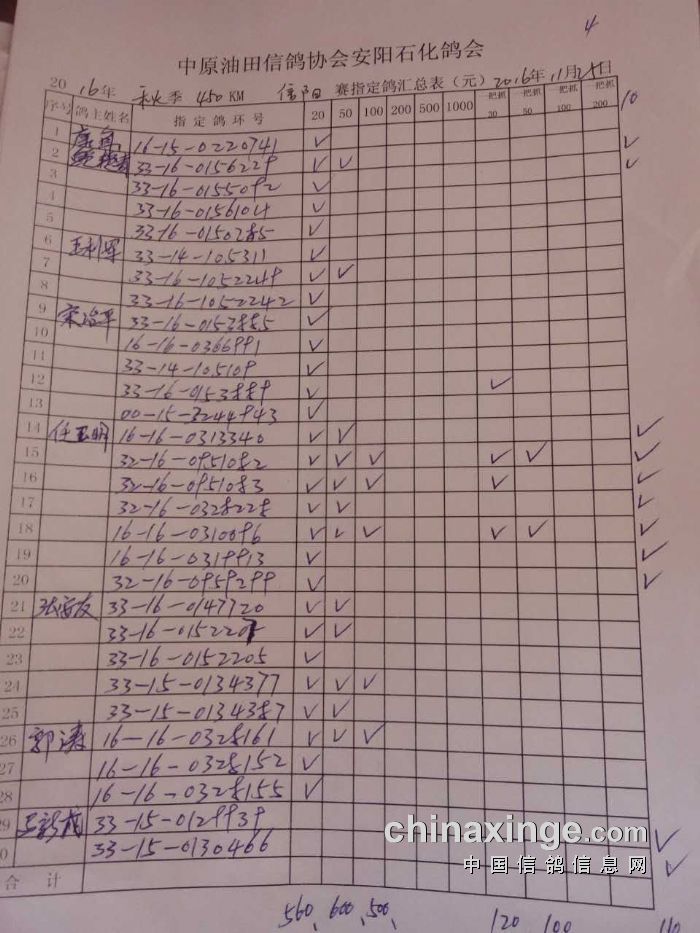 4
中原油田信鸽协会安阳石化鸽会
2016年 秋季 450KM 信阳 赛指定鸽汇总表（元）2016年11月 日
序号 鸽主姓名 指定鸽环号 20 50 100 200 500 1000 一把抓30 一把抓50 一把抓100 一把抓200 10
1 16-15-0220741 ✓ ✓
2 33-16-0156229 ✓ ✓ ✓
3 33-16-0155092 ✓
4 33-16-0156104 ✓
5 33-16-0150285 ✓
6 王利军 33-14-105311 ✓
7 33-16-1052249 ✓ ✓
8 33-16-1052242 ✓
9 宋治平 33-16-0153885 ✓
10 16-16-0366991 ✓
11 33-14-105109 ✓
12 33-16-0153889 ✓ ✓
13 00-15-3244943 ✓
14 任玉明 16-16-0313340 ✓ ✓ ✓
15 32-16-0951082 ✓ ✓ ✓ ✓ ✓ ✓
16 32-16-0951083 ✓ ✓ ✓ ✓ ✓
17 32-16-0328228 ✓ ✓ ✓
18 16-16-0310096 ✓ ✓ ✓ ✓ ✓ ✓
19 16-16-0319913 ✓ ✓
20 32-16-0959299 ✓ ✓
21 张富友 33-16-0147720 ✓ ✓
22 33-16-0152207 ✓ ✓
23 33-16-0152205 ✓
24 33-15-0134377 ✓ ✓ ✓
25 33-15-0134387 ✓ ✓
26 郭涛 16-16-0328161 ✓ ✓ ✓
27 16-16-0328152 ✓
28 16-16-0328155 ✓
29 33-15-0129939 ✓
0 33-15-0130466 ✓
合计
560、600、500、 120 100 110
chinaxinge.com
中国信鸽信息网